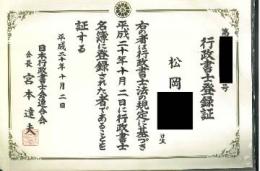 行政書士登録証
第
号
松岡
生
右の者は行政書士法の規定に基づき
平成二十年十月二日に行政書士
名簿に登録された者であることを
証する
平成二十年十月二日
日本行政書士会連合会
会長 宮本達夫